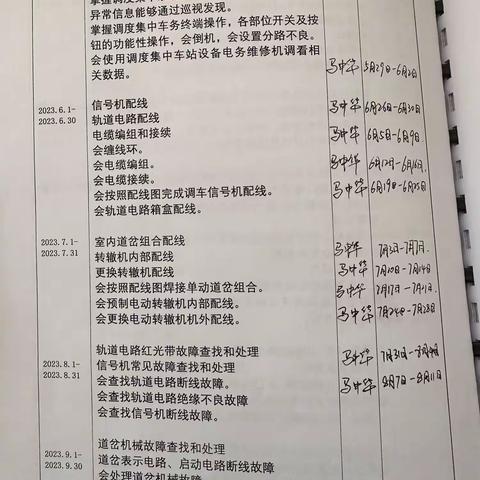 掌握调度集中
异常信息能够通过巡视发现。
掌握调度集中车务终端操作，各部位开关及按
钮的功能性操作，会倒机，会设置分路不良。
会使用调度集中车站设备电务维修机调看相
关数据。 马中华 5月29日-6月2日
2023.6.1- 信号机配线 马中华 6月26日-6月30日
2023.6.30 轨道电路配线
电缆编组和接续 马中华 6月5日-6月9日
会缠线环。
会电缆编组。 马中华 6月12日-6月16日
会电缆接续。
会按照配线图完成调车信号机配线。 马中华 6月19日-6月25日
会轨道电路箱盒配线。
2023.7.1- 室内道岔组合配线 马中华 7月3日-7月7日
2023.7.31 转辙机内部配线
更换转辙机配线 马中华 7月10日-7月14日
会按照配线图焊接单动道岔组合。 马中华 7月17日-7月21日
会预制电动转辙机内部配线。
会更换电动转辙机机外配线。 马中华 7月24日-7月28日
轨道电路红光带故障查找和处理 马中华 7月31日-8月4日
2023.8.1- 信号机常见故障查找和处理
2023.8.31 会查找轨道电路断线故障。 马中华 8月7日-8月11日
会查找轨道电路绝缘不良故障
会查找信号机断线故障。
道岔机械故障查找和处理
2023.9.1- 道岔表示电路、启动电路断线故障
2023.9.30 会处理道岔机械故障